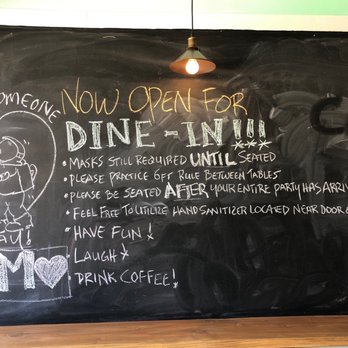 SOMEONE
NOW OPEN FOR
DINE-IN!!!
• MASKS STILL REQUIRED UNTIL SEATED
• PLEASE PRACTICE 6FT RULE BETWEEN TABLES
• PLEASE BE SEATED AFTER YOUR ENTIRE PARTY HAS ARRIV
• FEEL FREE TO UTILIZE HAND SANITIZER LOCATED NEAR DOOR &
• HAVE FUN!
• LAUGH!
• DRINK COFFEE!
M♥